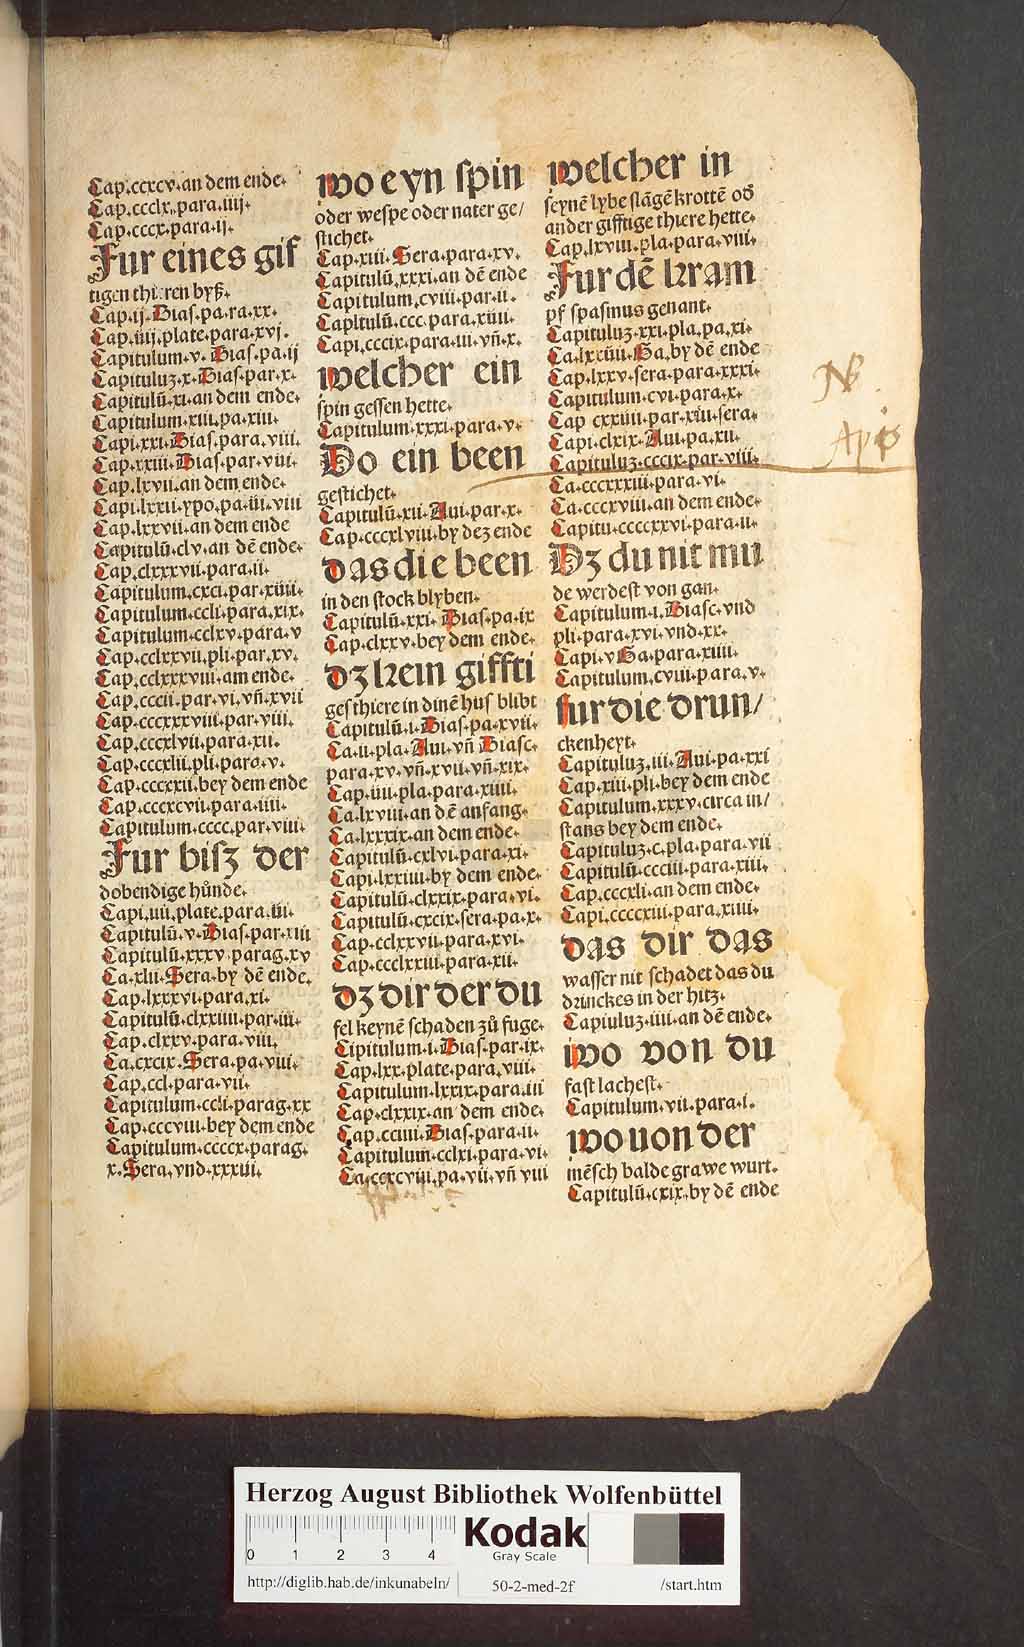 Cap.ccxcv.an dem ende.
Cap.ccclx.para.iiij.
Cap.cccx.para.ij.
Fur eines gif
tigen thieren byß.
Cap.ij.Dias.pa.ra.xx.
Cap.iiij.plate.para.xvj.
Capitulum.v.Dias.pa.ij
Capituluꝫ.x.Dias.par.x.
Capitulū.xi.an dem ende.
Capitulum.xiii.pa.xiii.
Capi.xxi.Dias.para.viii.
Cap.xxiii.Dias.par.viii.
Cap.lxvii.an dem ende.
Capi.lxxii.ypo.pa.iii.viii
Cap.lxxvii.an dem ende
Capitulū.clv.an dē ende.
Cap.clxxxvii.para.ii.
Capitulum.cxci.par.xiiii.
Capitulum.ccli.para.xix.
Capitulum.cclxv.para.v
Cap.cclxxvii.pli.par.xv.
Cap.cclxxxviii.am ende.
Cap.cccii.par.vi.vn̄.xvii
Cap.cccxxxviii.par.viii.
Cap.cccxlvii.para.xii.
Cap.cccxlii.pli.para.v.
Cap.cccxxii.bey dem ende
Cap.cccxcvii.para.iiii.
Capitulum.cccc.par.viii.
Fur bisz der
dobendige hůnde.
Capi.iiii.plate.para.iii.
Capitulū.v.Dias.par.xiii
Capitulū.xxxv.parag.xv
Ca.xlii.Sera.by dē ende.
Cap.lxxxvi.para.xi.
Capitulū.clxxiiii.par.iii.
Cap.clxxv.para.viii.
Ca.cxcix.Sera.pa.viii.
Cap.ccl.para.vii.
Capitulum.ccli.parag.xx
Cap.cccviii.bey dem ende
Capitulum.ccccx.parag.
x.Sera.vnd.xxxiii.
wo eyn spin
oder wespe oder nater ge/
stichet.
Cap.xiii.Sera.para.xv.
Capitulū.xxxi.an dē ende
Capitulum.cviii.par.ii.
Capitulū.ccc.para.xiiii.
Capi.cccix.para.iii.vn̄.x.
welcher ein
spin gessen hette.
Capitulum.xxxi.para.v.
Do ein been
gestichet.
Capitulū.xii.Aui.par.x.
Cap.cccxlviii.by deꝫ ende
das die been
in den stock blyben.
Capitulū.xxi.Dias.pa.ix
Cap.clxxv.bey dem ende.
dꝫ kein giffti
ges thiere in dinē hus blibt
Capitulū.i.Dias.pa.xvii.
Ca.ii.pla.Aui.vn̄ Diasc.
para.xv.vn̄.xvii.vn̄.xix.
Cap.iiii.pla.para.xiiii.
Ca.lxviii.an dē anfang.
Ca.lxxxix.an dem ende.
Capitulū.cxlvi.para.xi.
Capi.lxxiiii.by dem ende.
Capitulū.clxxix.para.vi.
Capitulū.cxcix.sera.pa.x.
Cap.cclxxvii.para.xvi.
Cap.ccclxxiii.para.xii.
dꝫ dir der du
fel keynē schaden zů fuge.
Cipitulum.i.Dias.par.ix.
Cap.lxx.plate.para.viii.
Capitulum.lxxix.para.iii
Cap.clxxix.an dem ende.
Cap.cciiii.Dias.para.ii.
Capitulum.cclxi.para.vi.
Ca.ccxcviii.pa.vii.vn̄ viii
welcher in
seynē lybe slāgē krottē od̄
ander gifftige thiere hette.
Cap.lxviii.pla.para.viii.
Fur dē kram
pf spasmus genant.
Capituluꝫ.xxi.pla.pa.xi.
Ca.lxxiiii.Ga.by dē ende
Cap.lxxv.sera.para.xxxi.
Capitulum.cvi.para.x.
Cap cxxiiii.par.xiii.sera.
Capi.clxix.Aui.pa.xii.
Capituluꝫ.cccix.par.viii.
Ca.cccxxxiii.para.vi.
Ca.cccxviii.an dem ende.
Capitu.ccccxxvi.para.ii.
Dꝫ du nit mu
de werdest von gan.
Capitulum.i.Diasc.vnd
pli.para.xvi.vnd.xx.
Capi.v Ga.para.xiiii.
Capitulum.cviii.para.v.
fur die drun/
ckenheyt.
Capituluꝫ.iii.Aui.pa.xxi
Cap.xiii.pli.bey dem ende
Capitulum.xxxv.circa in/
stans bey dem ende.
Capituluꝫ.c.pla.para.vii
Capitulū.ccciii.para.xiii.
Cap.cccxli.an dem ende.
Capi.ccccxiii.para.xiiii.
das dir das
wasser nit schadet das du
drinckes in der hitz.
Capiuluꝫ.iiii.an dē ende.
wo von du
fast lachest.
Capitulum.vii.para.i.
wo uon der
mēsch balde grawe wurt.
Capitulū.cxix.by dē ende
NB.
Apis
Herzog August Bibliothek Wolfenbüttel
0 1 2 3 4
Kodak
Gray Scale
http://diglib.hab.de/inkunabeln/ 50-2-med-2f /start.htm